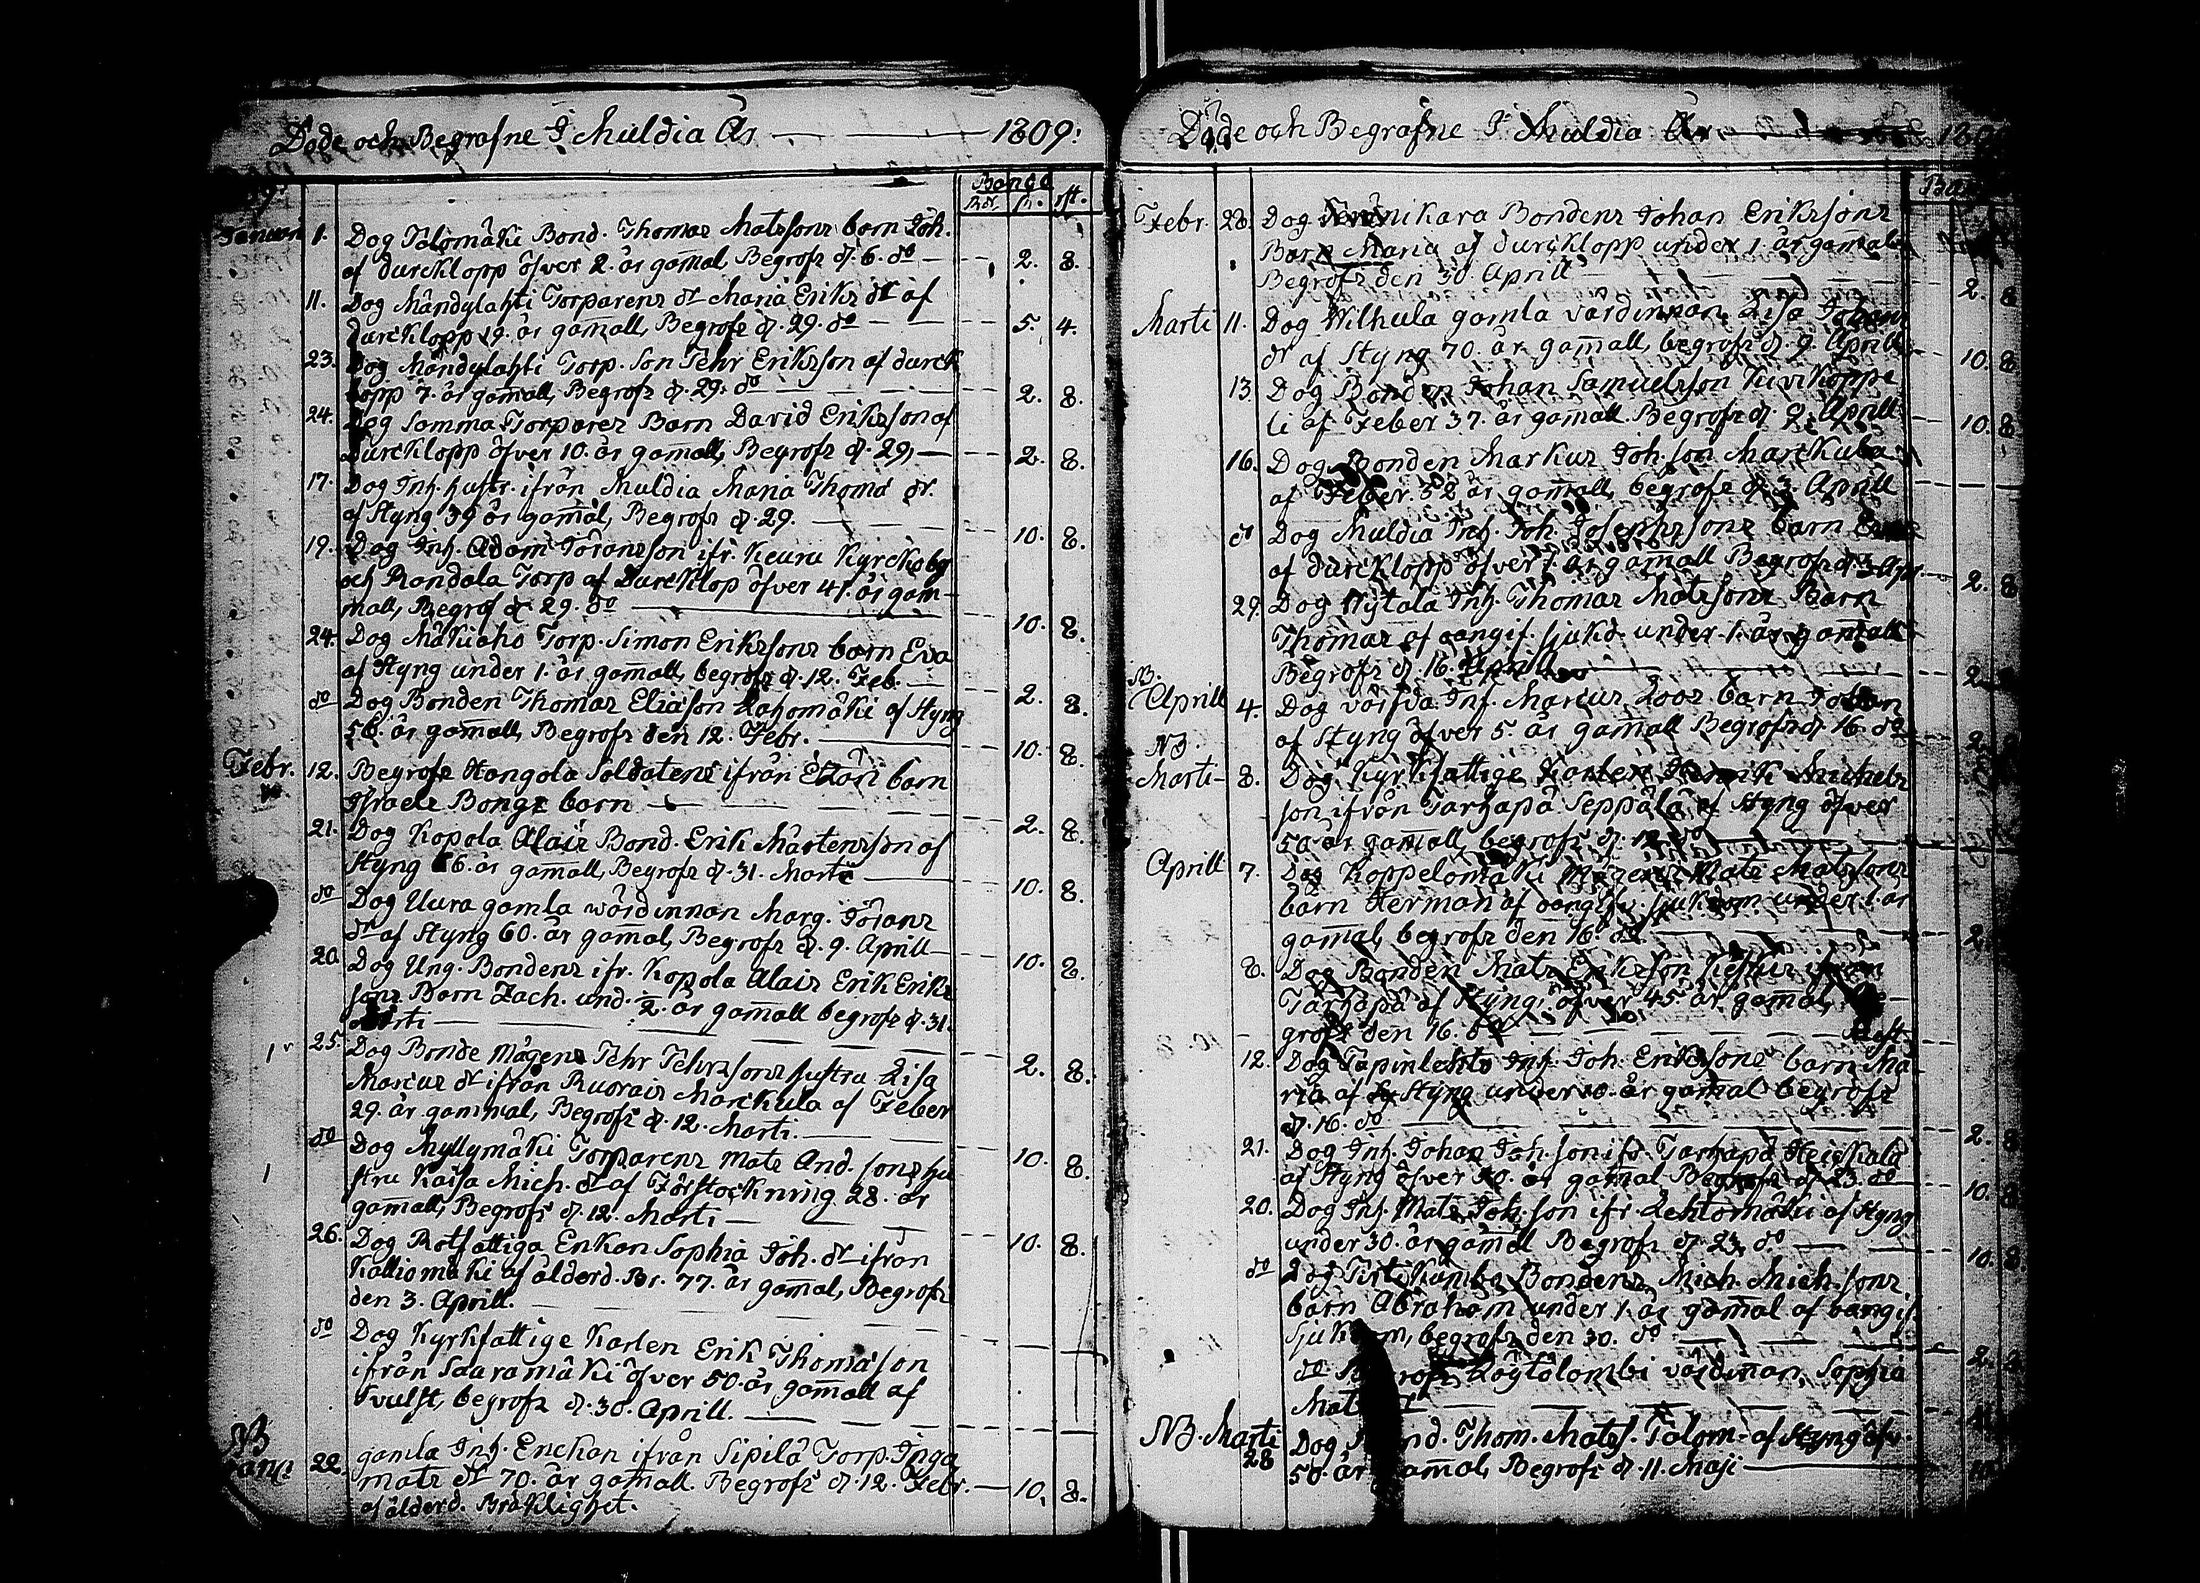 Döde och Begrafne I Muldia År 1809.
Banco
Rdr. ß. rst.
Januari 1. Dog Talomäki Bond. Thomas Matssons barn Joh.
af durcklopp öfver 2. år gamal, Begrofs d. 6. do 2. 8.
11. Dog Mändylahti Torparens dr Maria Eriks dr af
durcklopp 19. år gamall, Begrofs d. 29. do 5. 4.
23. Dog Mändylahti Torp. Son Pehr Eriksson af durck
lopp 7. år gamall, Begrofs d. 29. do 2. 8.
24. Dog Samma Torpares Barn David Eriksson af
Durcklopp öfver 10. år gamall, Begrofs d. 29. 2. 8.
17. Dog Inh. hustr. ifrån Muldia Maria Thomæ dr.
af Styng 39 år gamal, Begrofs d. 29. 10. 8.
19. Dog Inh. Adam Göransson ifr. Keuru Kyrckoby
och Randala Torp af Durcklop öfver 41. år gam-
mall, Begrof d. 29. do 10. 8.
24. Dog Mäkiaho Torp. Simon Erikssons barn Eva
af Styng under 1. år gamall, begrofs d. 12. Feb. 2. 8.
do Dog Bonden Thomas Eliasson Lahomäki af Styng
56. år gamall, Begrofs den 12. Febr. 10. 8.
Febr. 12. Begrofs Hangola Soldatens ifrån Etzäri barn
Israels Bongs barn 2. 8.
21. Dog Kopola Alais Bond. Erik Mårtensson af
Styng 66. år gamall, Begrofs d. 31. Marti 10. 8.
do Dog Uura gamla wärdinnan Marg. Görans
dr af Styng 60. år gamal, Begrofs d. 9. Aprill 10. 8.
20. Dog Ung. Bondens ifr. Kopola Alais Erik Eriks
sons Barn Zach. und. ½. år gamall begrofs d. 31.
Marti 2. 8.
25. Dog Bonde Mågens Pehr Pehrssons hustru Lisa
Marcus dr ifrån Ruorais Marckula af Feber
29. år gammal, Begrofs d. 12. Marti. 10. 8.
do Dog Myllymäki Torparens Mats And. sons hu
stru Kaisa Mich. dr af Förstockning 28. år
gamall, Begrofs d. 12. Marti 10. 8.
26. Dog Rotfattiga Enkan Sophia Joh. dr ifrån
Kalliomäki af ålderd. Br. 77. år gamal, Begrofs
den 3. Aprill.
do Dog Kyrkfattige Karlen Erik Thomasson
ifrån Saaramäki öfver 50. år gamall af
Svulst, begrofs d. 30. Aprill.
NB
Janu. 22. gamla Inh. Enckan ifrån Sipilä Torp. Inga
Mats dr 70. år gamall. Begrofs d. 12. Febr. 10. 8.
af ålderd. Bräklighet.
Döde och Begrafne I Muldia År
Febr. 28. Dog Bondens Johan Erikssons
Barn Maria af durcklopp under 1. år gamall
Begrofs den 30. Aprill 2. 8
Marti 11. Dog Wilhula gamla värdinnan Lisa Johans
dr af Styng 70. år gamall, begrofs d. 9. Aprill 10. 8
13. Dog Bonden Johan Samuelsson Kivikoppe
li af Feber 37. år gamall. Begrofs d. 9. Aprill 10. 8
16. Dog Bonden Markus Joh. son Marckula
af Feber 52 år gamall, begrofs d. 3. Aprill
do Dog Muldia Inh. Joh. Josephssons barn
af durcklopp öfver 1. år gamall Begrofs d. 3 Apr. 2. 8
29. Dog Wytala Inh. Thomas Matssons Barn
Thomas af oangif. sjukd. under 1. år gamall
Begrofs d. 16. Aprill 2.
NB.
Aprill 4. Dog värfda Inh. Marcus Loos barn Johan
af Styng öfver 5. år gamall Begrofs d. 16. do 2.
NB.
Marti 8. Dog Kyrkfattige Karlen Henrik Michels
son ifrån Tarhapä Seppälä af Styng öfver
50 år gamall, begrofs d. 12. do
Aprill 7. Dog Koppelomäki Mågens Mats Matssons
barn Herman af oangif. sjukdom under 1. år
gamal, begrofs den 16. do 2.
8. Dog Bonden Mats Eriksson ifrån
Tarhapä af Styng, öfver 45 år gamal, Be
grofs den 16. do Rest.
12. Dog Tapinlehto Inh. Joh. Erikssons barn Ma
ria af Styng under 10. år gamal begrofs
d. 16. do 2. 8
21. Dog Inh. Johan Joh. son ifr. Tarhapä Heickala
af Styng öfver 40. år gamal Begrofs d. 23. do 10. 8
20. Dog Inh. Mats Joh. son ifr. Lehtomäki af Styng
under 30. år gamall Begrofs d. 23. do 10. 8.
do Dog Bondens Mich. Mich. sons
barn Abraham under 1. år gamal af oangif.
sjukdom, begrofs den 30. do 2.
do Begrofs Löytölombi värdinnan, Sophia
Mats dr
NB. Marti
28 Dog Bond. Thom. Matss. Talom. af Styng öfv.
50. år gamal, Begrofs d. 11. Maji 10.